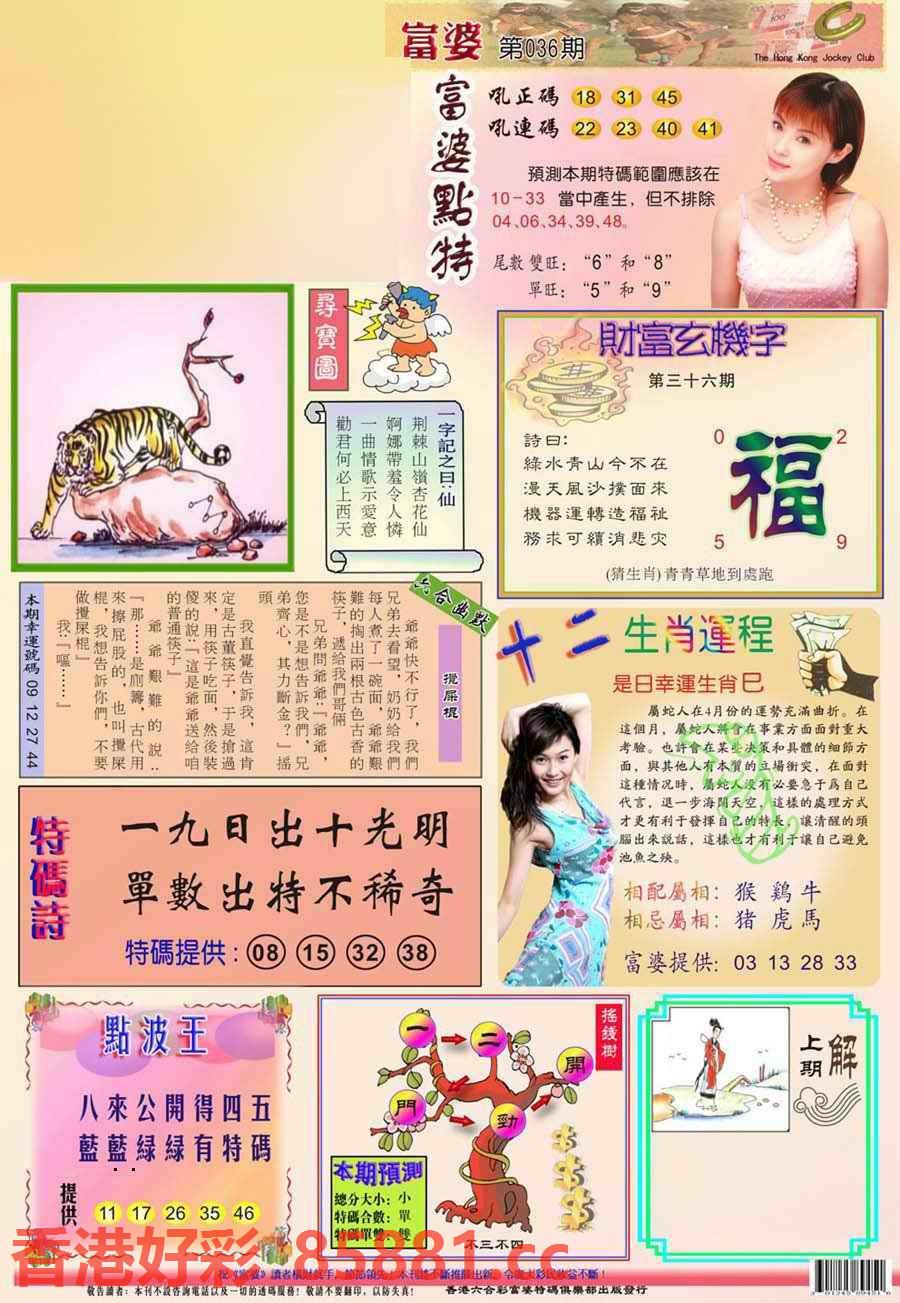 富婆 第036期
The Hong Kong Jockey Club
富婆點特
吼正碼 18 31 45
吼連碼 22 23 40 41
預測本期特碼範圍應該在
10-33 當中產生，但不排除
04、06、34、39、48。
尾數雙旺：“6”和“8”
單旺：“5”和“9”
尋寶圖
一字記之曰：仙
荆棘山嶺杏花仙
婀娜帶羞令人憐
一曲情歌示愛意
勸君何必上西天
財富玄機字
第三十六期
詩曰：
綠水青山今不在
漫天風沙撲面來
機器運轉造福祉
務求可續消悲灾
0 2
福
5 9
(猜生肖)青青草地到處跑
六合幽默
攪屎棍
爺爺快不行了，我們
兄弟去看望，奶奶給我們
每人煮了一碗面，爺爺艱
難的掏出兩根古色古香的
筷子，遞給我們哥倆
兄弟問爺爺：『爺爺，
您是不是想告訴我們，兄
弟齊心，其力斷金？』搖
頭
我直覺告訴我，這肯
定是古董筷子，于是搶過
來，用筷子吃面，然後裝
傻的説：『這是爺爺送給咱
的普通筷子』
爺爺艱難的説：
『那……是厠籌，古代用
來擦屁股的，也叫攪屎
棍，我想告訴你們，不要
做攪屎棍』
我：『嘔……』
本期幸運號碼 09 12 27 44
十二生肖運程
是日幸運生肖巳
屬蛇人在4月份的運勢充滿曲折。在
這個月，屬蛇人將會在事業方面面對重大
考驗。也許會在某些决策和具體的細節方
面，與其他人有本質的立場衝突，在面對
這種情况時，屬蛇人没有必要急于爲自己
代言，退一步海闊天空，這樣的處理方式
才更有利于發揮自己的特長，讓清醒的頭
腦出來説話，這樣也才有利于讓自己避免
池魚之殃。
相配屬相：猴 鷄 牛
相忌屬相：猪 虎 馬
富婆提供：03 13 28 33
特碼詩
一九日出十光明
單數出特不稀奇
特碼提供：08 15 32 38
點波王
八來公開得四五
藍藍綠綠有特碼
提供 11 17 26 35 46
搖錢樹
一 二 開
門 勁
本期預測
總分大小：小
特碼合數：單
特碼單雙：雙
不三不四
上期解
香港好彩 85881.cc
敬告讀者：本刊不設咨詢電話以及一切的透碼服務！敬請不要翻印，以防失真！
香港六合彩富婆特碼俱樂部出版發行